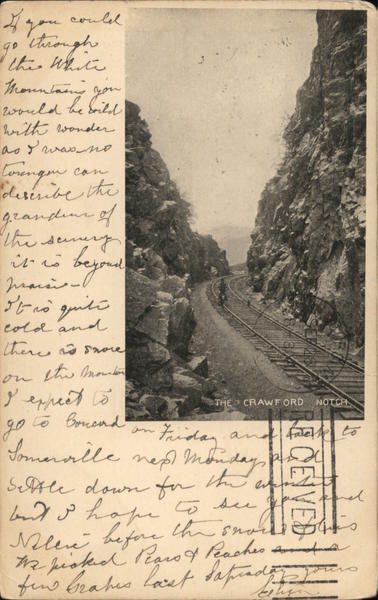 If you could
go through
the White
Mountains you
would be wild
with wonder
as I was no
tounge can
describe the
grandeur of
the scenery
it is beyond
praise -
It is quite
cold and
there is snow
on the Mountain
I expect to
go to Concord on Friday and back to
Somerville next Monday and
settle down for the winter
but I hope to see you and
Nellie before the snow flies
We picked Pears & Peaches and a
few Grapes last Saturday yours
THE CRAWFORD NOTCH
RECEIVED